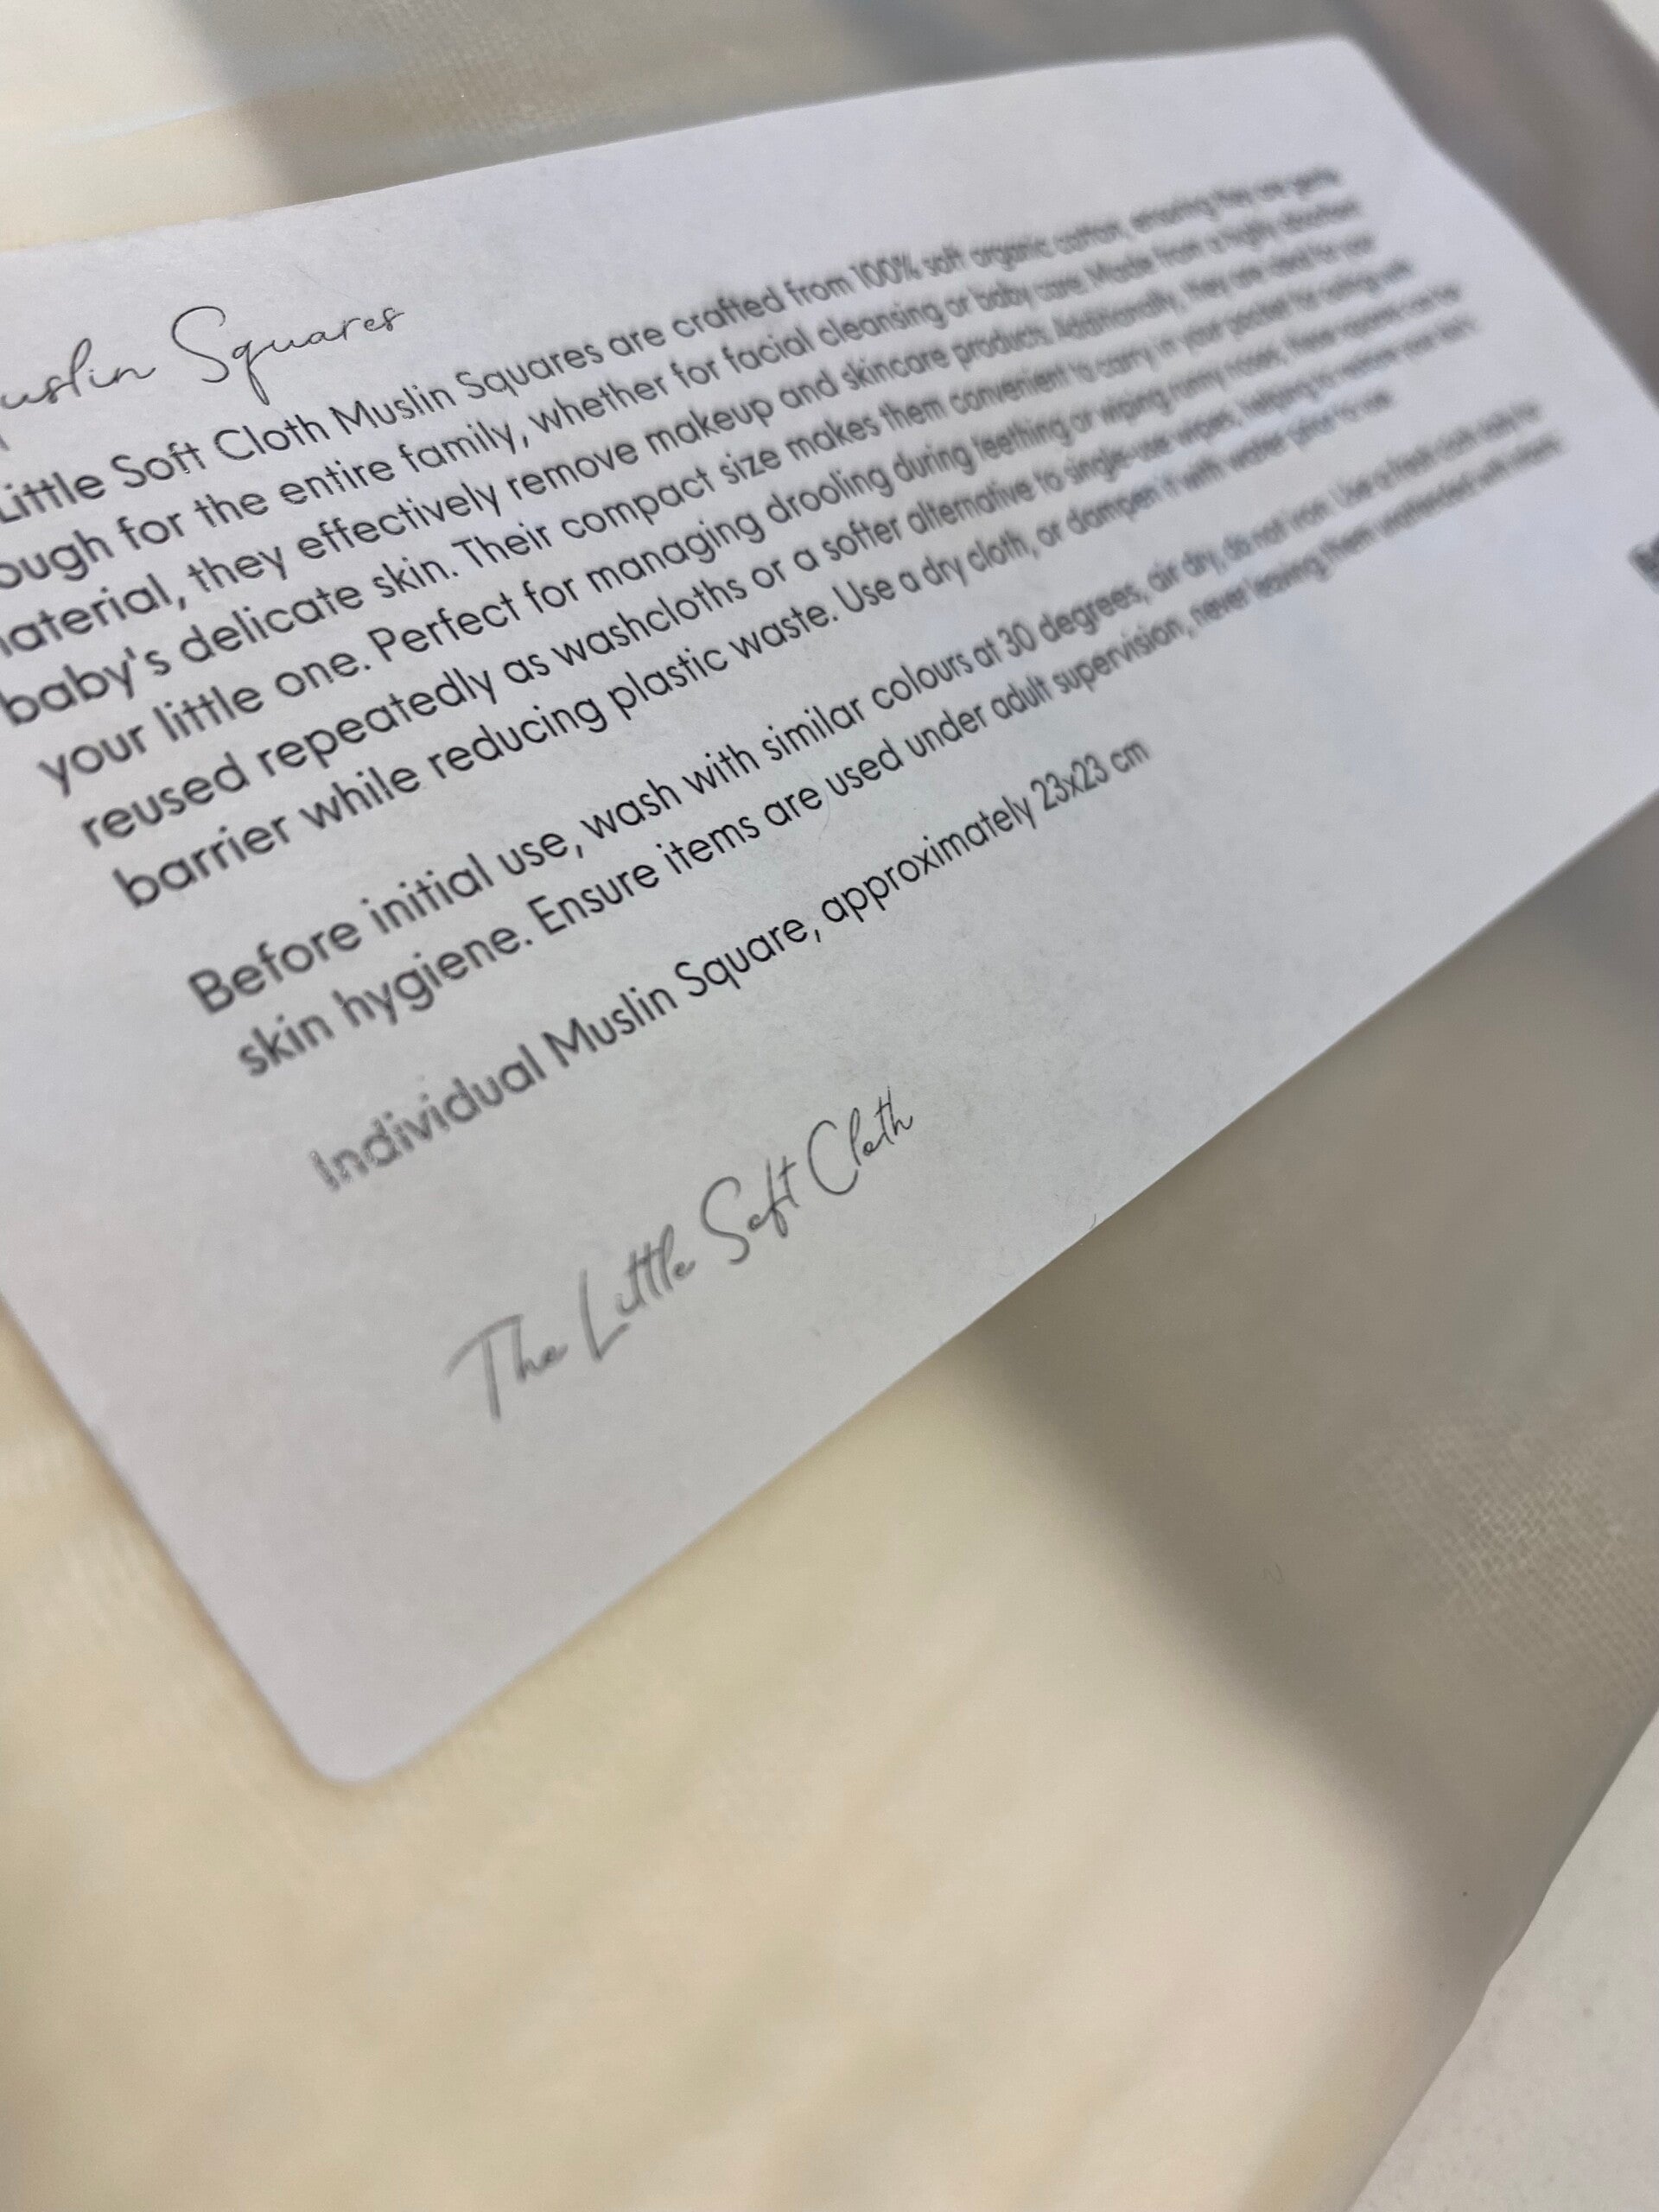 Muslin Squares
Little Soft Cloth Muslin Squares are crafted from 100% soft organic cotton, ensuring they are gentle
ough for the entire family, whether for facial cleansing or baby care. Made from a highly absorbent
material, they effectively remove makeup and skincare products. Additionally, they are ideal for your
baby's delicate skin. Their compact size makes them convenient to carry in your pocket for outings with
your little one. Perfect for managing drooling during teething or wiping runny noses, these squares can be
reused repeatedly as washcloths or a softer alternative to single-use wipes, helping to
barrier while reducing plastic waste. Use a dry cloth, or dampen it with water prior to use.
Before initial use, wash with similar colours at 30 degrees, air dry, do not iron. Use a fresh cloth daily for
skin hygiene. Ensure items are used under adult supervision, never leaving them unattended with infants.
Individual Muslin Square, approximately 23x23 cm
The Little Soft Cloth